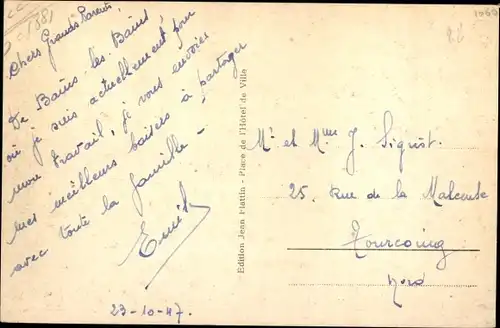 1881
Chers Grands-Parents,
De Bains-les-Bains
où je suis actuellement pour
mon travail, je vous envoies
mes meilleurs baisers à partager
avec toute la famille -
Emile
23-10-47.
Edition Jean Plattin - Place de l'Hôtel de Ville
Mr et Mme J. Siguist.
25, Rue de la Malcense
Tourcoing
Nord